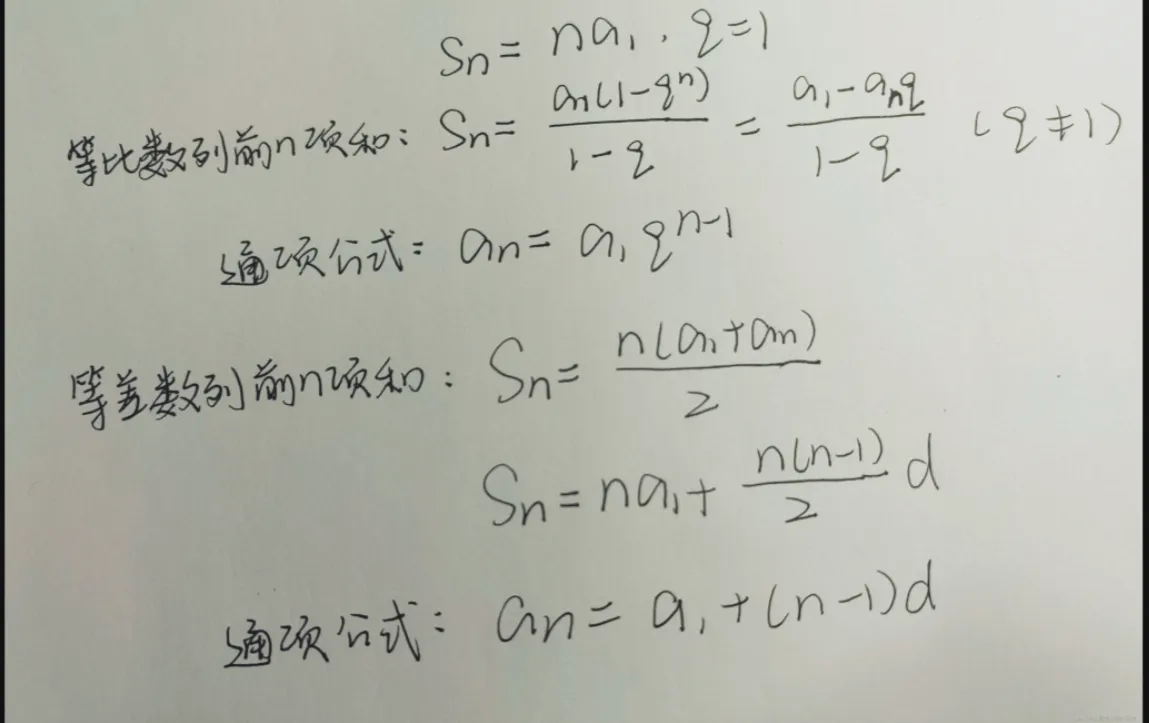 Sn = na₁, q=1
等比数列前n项和: Sn = an(1-qⁿ)/(1-q) = (a₁-anq)/(1-q) (q≠1)
通项公式: an = a₁qⁿ⁻¹
等差数列前n项和: Sn = n(a₁+an)/2
Sn = na₁ + n(n-1)/2 d
通项公式: an = a₁+(n-1)d